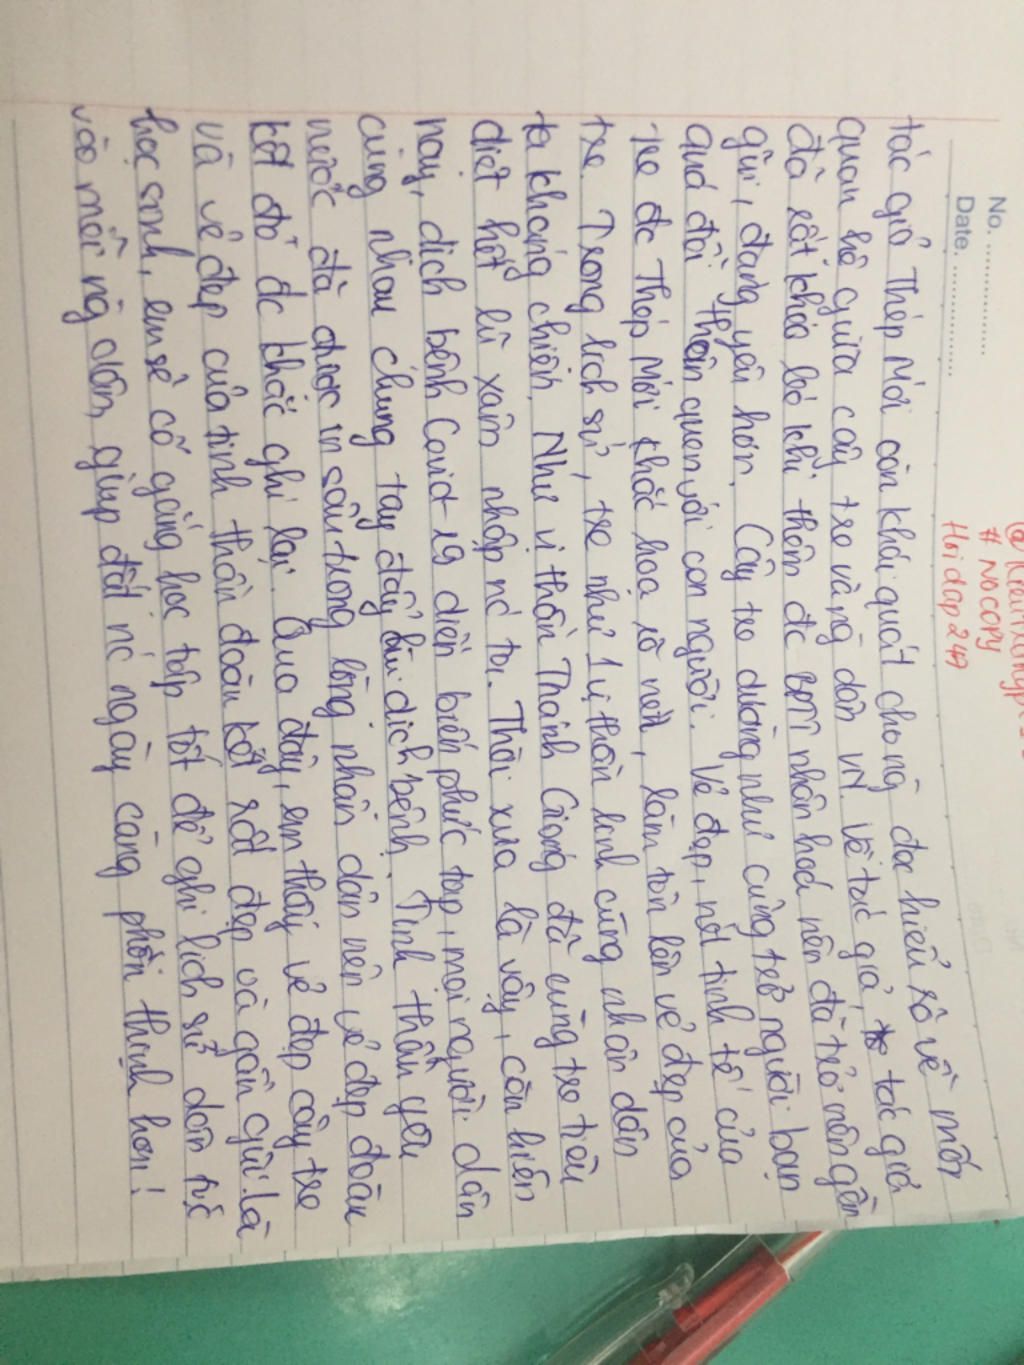 No. ..............
Date. ..............
# NOCOPY
Hỏi đáp 247
tác giả Thép Mới còn khái quát cho ng đọc hiểu rõ về mối
quan hệ giữa cây tre và ng dân VN. Về tác giả, tác giả
đã rất khéo léo khi thân đc BPTT nhân hoá nên đã trở nên gần
gũi, đáng yêu hơn. Cây tre dường như cũng trở người bạn
quá đỗi thân quen với con người. Vẻ đẹp, nét tinh tế của
tre đc Thép Mới khắc hoạ rõ nét, làm tôn lên vẻ đẹp của
tre. Trong lịch sử, tre như 1 vị thần linh cùng nhân dân
ta kháng chiến. Như vị thần Thánh Gióng đã cùng tre tiêu
diệt hết lũ xâm nhập nc ta. Thời xưa là vậy, còn hiện
nay, dịch bệnh Covid 19 diễn biến phức tạp, mọi người dân
cùng nhau chung tay đẩy lùi dịch bệnh. Tinh thần yêu
nước đã được in sâu trong lòng nhân dân nên vẻ đẹp đoàn
kết đó đc khắc ghi lại. Qua đây, em thấy vẻ đẹp cây tre
và vẻ đẹp của tinh thần đoàn kết rất đẹp và gần gũi. Là
học sinh, em sẽ cố gắng học tập tốt để ghi lịch sử dân tộc
vào mỗi ng dân, giúp đất nc ngày càng phồn thịnh hơn!